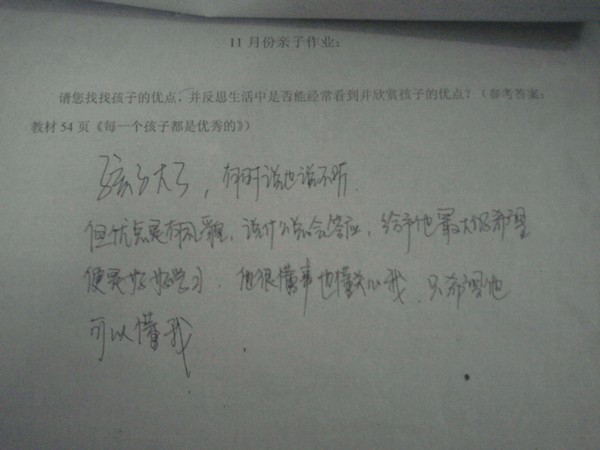 11月份亲子作业：
请您找找孩子的优点，并反思生活中是否能经常看到并欣赏孩子的优点？（参考答案：
教材54页《每一个孩子都是优秀的》）
孩子大了，有时说也说不听.
但优点是有礼貌，说什么都会答应，给予他最大的希望
便是好好学习．他很懂事也懂关心我．只希望他
可以懂我